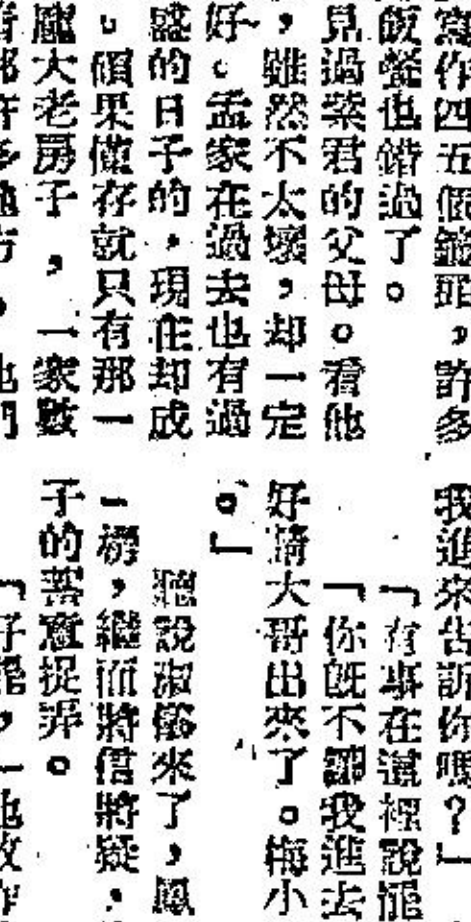 寫作四五個鐘頭，許多
飯餐也錯過了。
見過紫君的父母。看他
，雖然不太壞，却一定
好。孟家在過去也有過
盛的日子的，現在却成
。碩果僅存就只有那一
龐大老房子，一家數
我進來告訴你嗎？」
「有事在這裡說罷
「你既不讓我進去
好請大哥出來了。梅小
。」
聽說淑儀來了，鳳
一楞，繼而將信將疑，
子的善意捉弄。